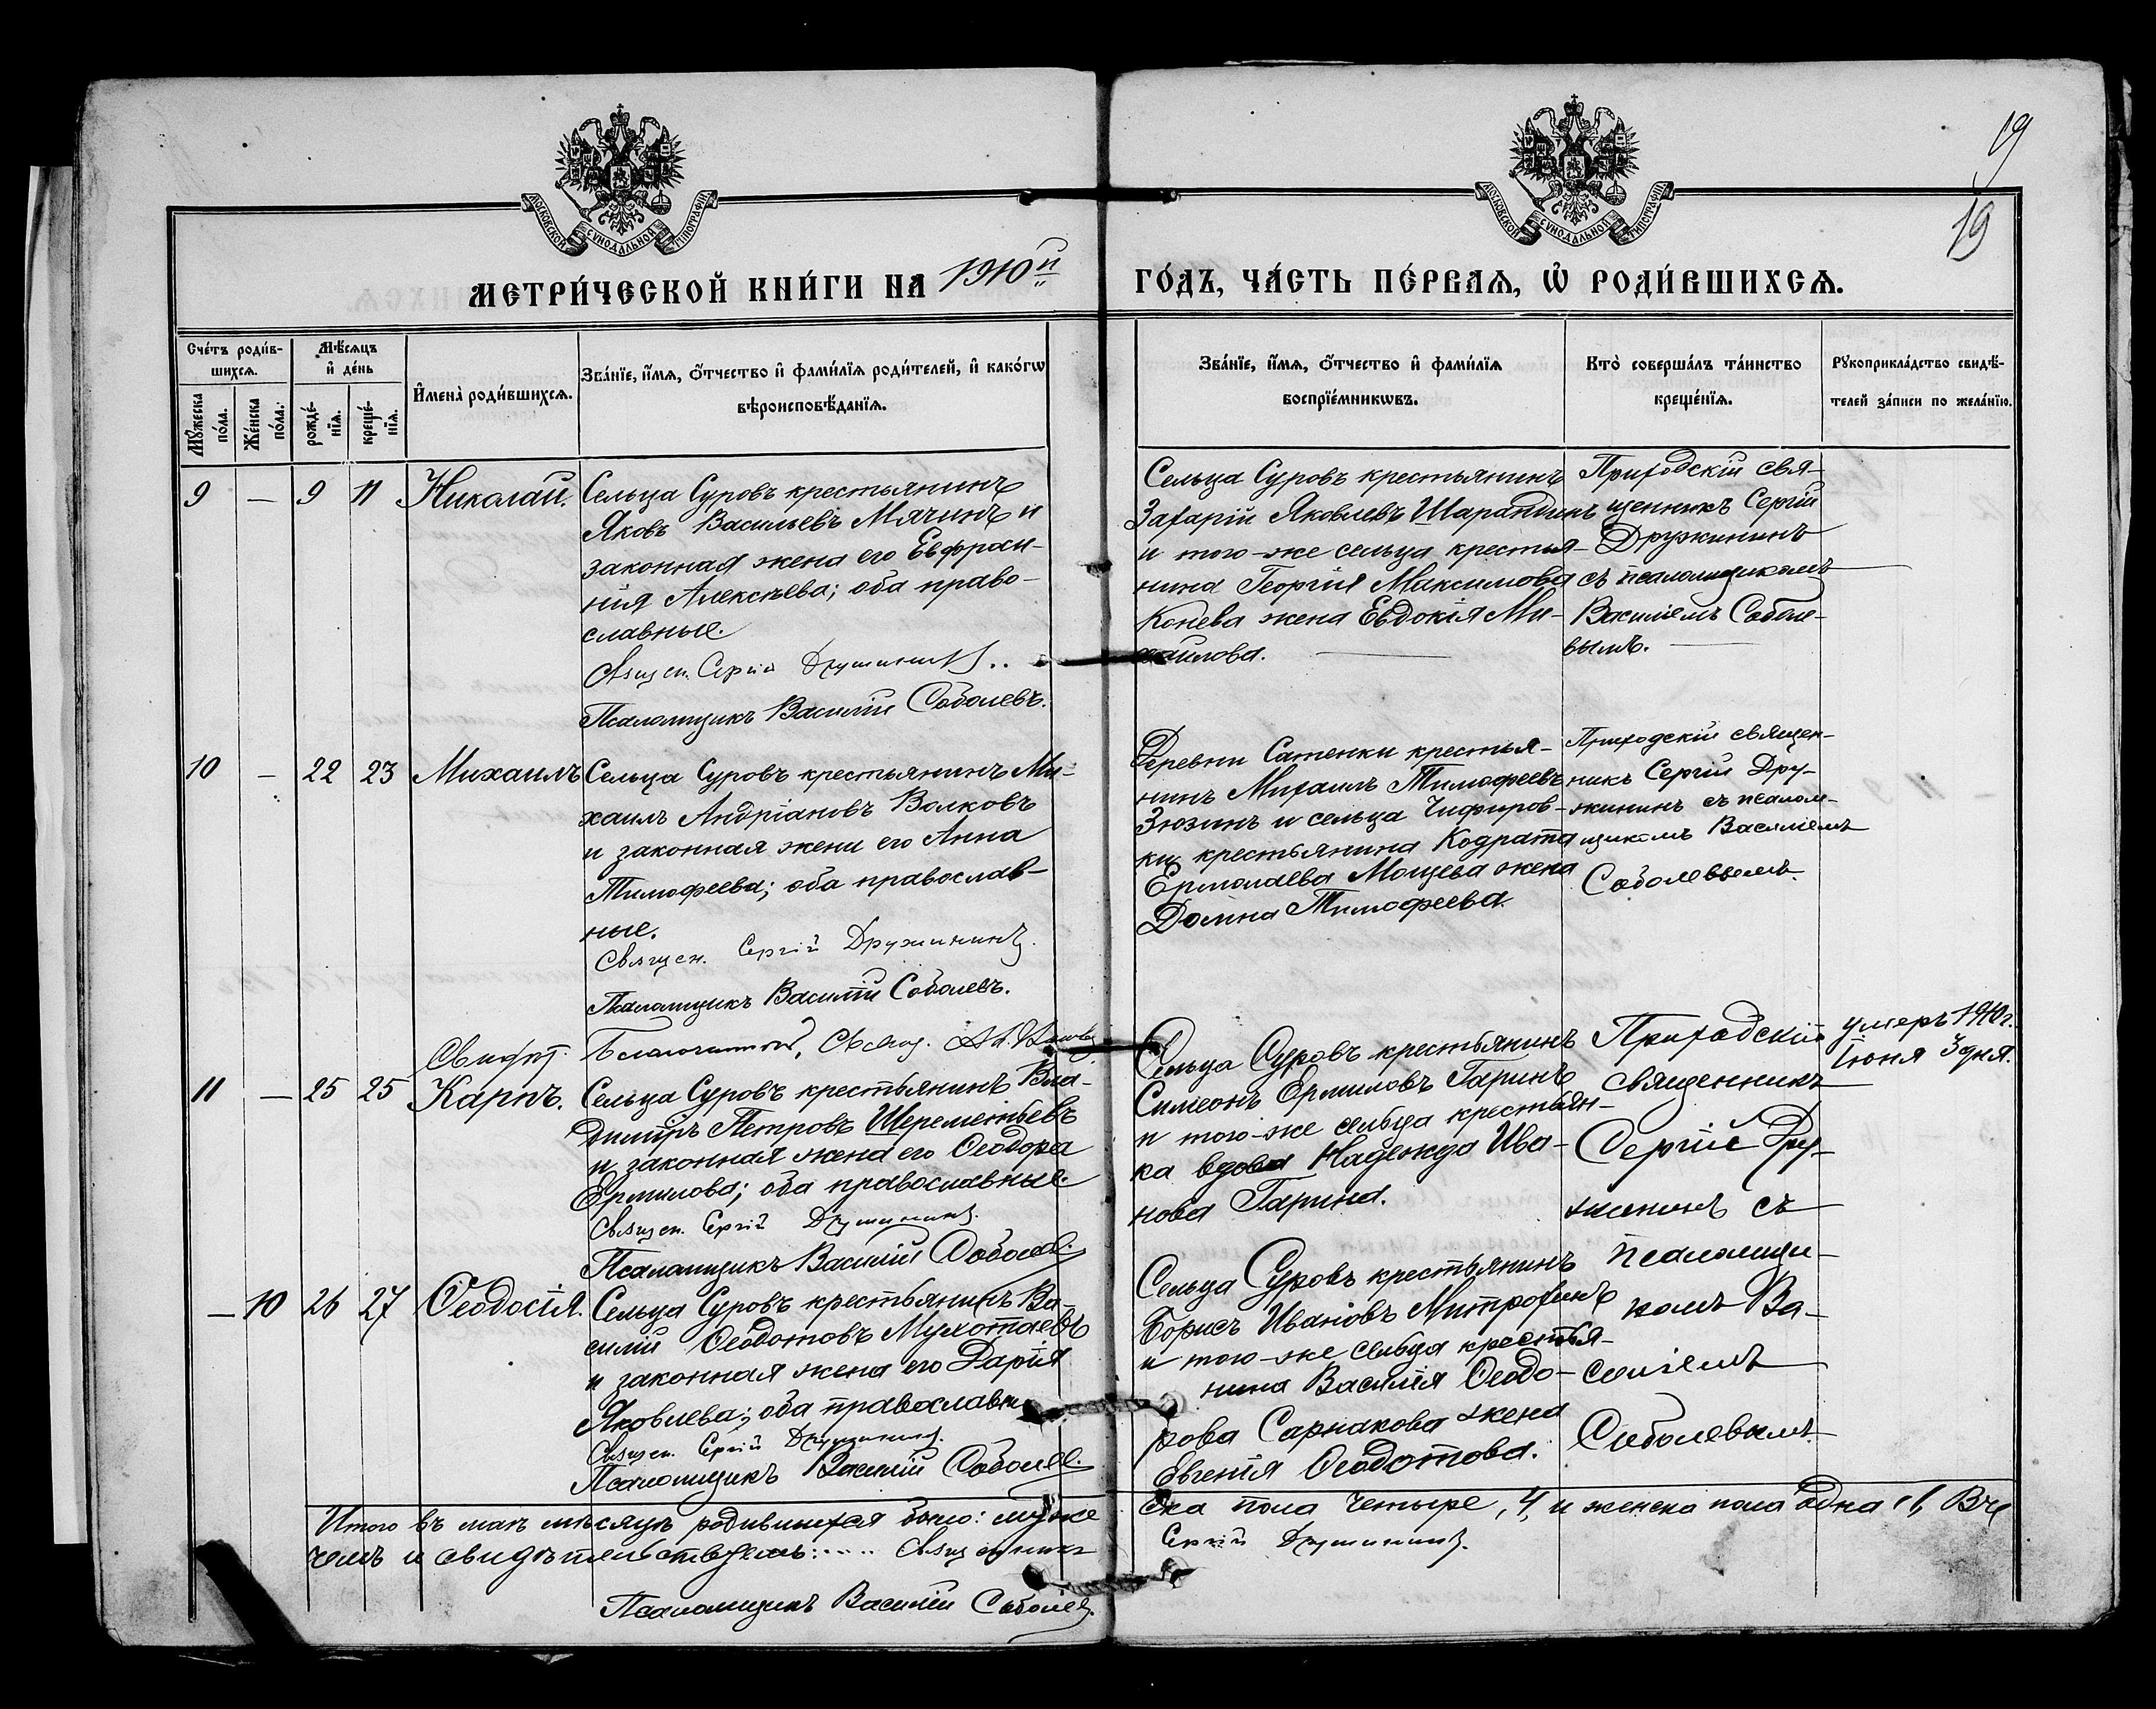 19
19
МОСКОВСКОЙ СѴНОДАЛЬНОЙ ТИПОГРАФІИ.
МОСКОВСКОЙ СѴНОДАЛЬНОЙ ТИПОГРАФІИ.
МЕТРИ́ЧЕСКОЙ КНИ́ГИ НА 1910й ГО́ДЪ, ЧА́СТЬ ПЕ́РВАѦ, Ѡ҆ РОДИ́ВШИХСѦ.
Сче́тъ роди́в-
шихсѧ.
Мѣ́сѧцъ
и҆ де́нь
Мꙋ́жеска
по́ла.
Же́нска
по́ла.
рожде́-
нїѧ.
креще́-
нїѧ.
И҆мена̀ роди́вшихсѧ.
Зва́нїе, и҆́мѧ, ѻ҆́тчество и҆ фами́лїѧ роди́телей, и҆ како́гѡ
вѣроисповѣ́данїѧ.
Зва́нїе, и҆́мѧ, ѻ҆́тчество и҆ фами́лїѧ
воспрїе́мникѡвъ.
Кто̀ соверша́лъ та́инство
креще́нїѧ.
Рꙋкоприкла́дство свидѣ́-
телей за́писи по жела́нїю.
9 — 9 11 Николай.
Сельца Суровъ крестьянинъ
Яковъ Васильевъ Мячинъ и
законная жена его Евфроси-
нія Алексѣева; оба право-
славные.
Священ. Сергій Дружининъ..
Псаломщикъ Василій Соболевъ.
Сельца Суровъ крестьянинъ
Захарій Яковлевъ Шарандинъ
и того-же сельца крестья-
нина Георгія Максимова
Конева жена Евдокія Ми-
хаилова.
Приходскій свя-
щенникъ Сергій
Дружининъ
съ псаломщикомъ
Василіемъ Соболе-
вымъ.
10 — 22 23 Михаилъ
Сельца Суровъ крестьянинъ Ми-
хаилъ Андріановъ Волковъ
и законная жена его Анна
Тимофеева; оба православ-
ные.
Священ. Сергій Дружининъ.
Псаломщикъ Василій Соболевъ.
Деревни Сатенки крестья-
нинъ Михаилъ Тимофеевъ
Зюзинъ и сельца Чифиров-
ки крестьянина Кодрата
Ермолаева Мощева жена
Домна Тимофеева.
Приходскій священ-
никъ Сергій Дру-
жининъ съ псалом-
щикомъ Василіемъ
Соболевымъ.
Благочинный, Свящ.
11 — 25 25 Карпъ.
Сельца Суровъ крестьянинъ Вла-
димiръ Петровъ Шереметьевъ
и законная жена его Ѳеодора
Ермилова; оба православные.
Священ. Сергій Дружининъ.
Псаломщикъ Василій Соболевъ.
Сельца Суровъ крестьянинъ
Симеонъ Ермиловъ Гаринъ
и того-же сельца крестьян-
ка вдова Надежда Ива-
нова Гарина.
Приходскій
священникъ
Сергій Дру-
жининъ съ
псаломщи-
комъ Ва-
силіемъ
Соболевымъ.
умеръ 1910 г.
Іюня 3 дня.
— 10 26 27 Ѳеодосія.
Сельца Суровъ крестьянинъ Ва-
силій Ѳеодотовъ Мухотаевъ
и законная жена его Дарія
Яковлева; оба православн
Священ. Сергій Дружининъ.
Псаломщикъ Василій Соболев.
Сельца Суровъ крестьянинъ
Борисъ Ивановъ Митрофинъ
и того-же сельца крестья-
нина Василія Ѳеодо-
рова Сарнакова жена
Евгенія Ѳеодотова.
Итого въ маѣ мѣсяцѣ родившихся было: муже
ска пола четыре, 4, и женска пола одна 1, Въ
чемъ и свидѣтельствуемъ: .... Священникъ
Сергій Дружининъ.
Псаломщикъ Василій Соболев.